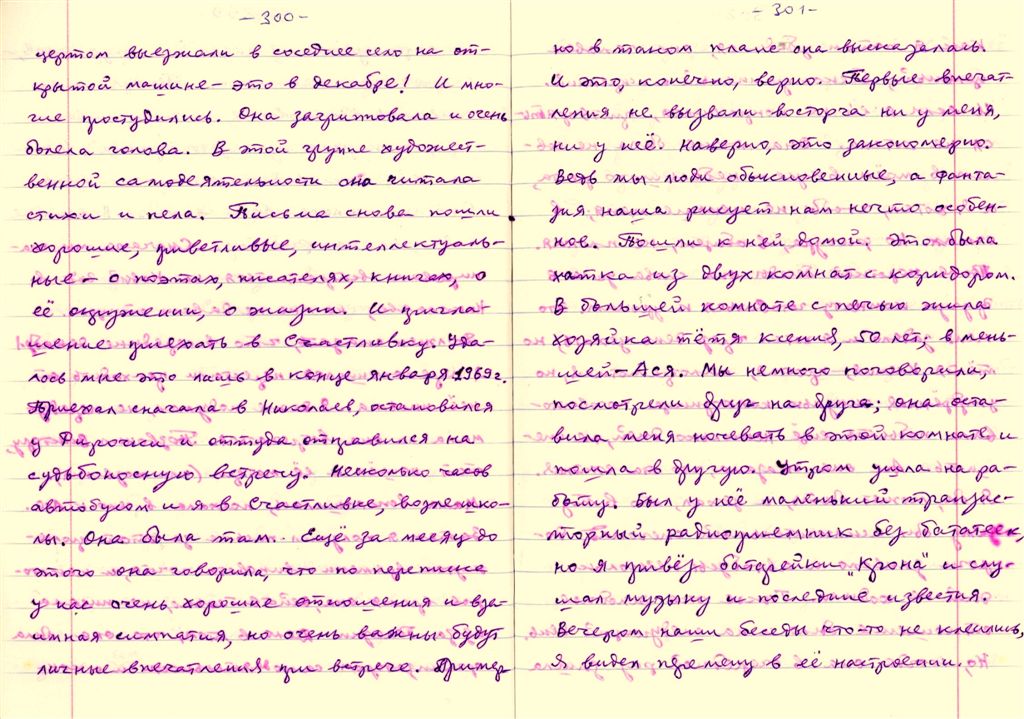 - 300 -
цертом выезжали в соседнее село на от-
крытой машине - это в декабре! И мно-
гие простудились. Она загрипповала и очень
болела голова. В этой группе художест-
венной самодеятельности она читала
стихи и пела. Письма снова пошли
хорошие, приветливые, интеллектуаль-
ные - о поэтах, писателях, книгах, о
её окружении, о жизни. И пригла-
шение приехать в Счастливку. Уда-
лось мне это лишь в конце января 1969г.
Приехал сначала в Николаев, остановился
у Фирочки и оттуда отправился на
судьбоносную встречу. Несколько часов
автобусом и я в Счастливке, возле шко-
лы. Она была там. Ещё за месяц до
этого она говорила, что по переписке
у нас очень хорошие отношения и вза-
имная симпатия, но очень важны будут
личные впечатления при встрече. Пример
- 301 -
но в таком плане она высказалась.
И это, конечно, верно. Первые впечат-
ления не вызвали восторга ни у меня,
ни у неё. Наверно, это закономерно.
Ведь мы люди обыкновенные, а фанта-
зия наша рисует нам нечто особен-
ное. Пошли к ней домой; это была
хатка из двух комнат с коридором.
В большей комнате с печью жила
хозяйка тётя Ксения, 50 лет; в мень-
шей - Ася. Мы немного поговорили,
посмотрели друг на друга; она оста-
вила меня ночевать в этой комнате и
пошла в другую. Утром ушла на ра-
боту. Был у неё маленький транзис-
торный радиоприемник без батареек,
но я привёз батарейки "Крона" и слу-
шал музыку и последние известия.
Вечером наши беседы что-то не клеились,
я видел перемену в её настроении.